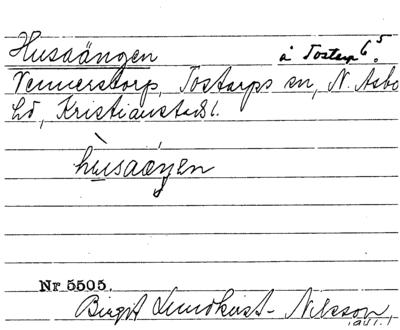 Husaängen å Tostarp 6⁵.
Vennerstorp, Tostarps sn, N. Åsbo
hd, Kristianstads l.
hùsaǫ́ŋen
Nr 5505.
Birgit Lundkvist-Nilsson,
1941.